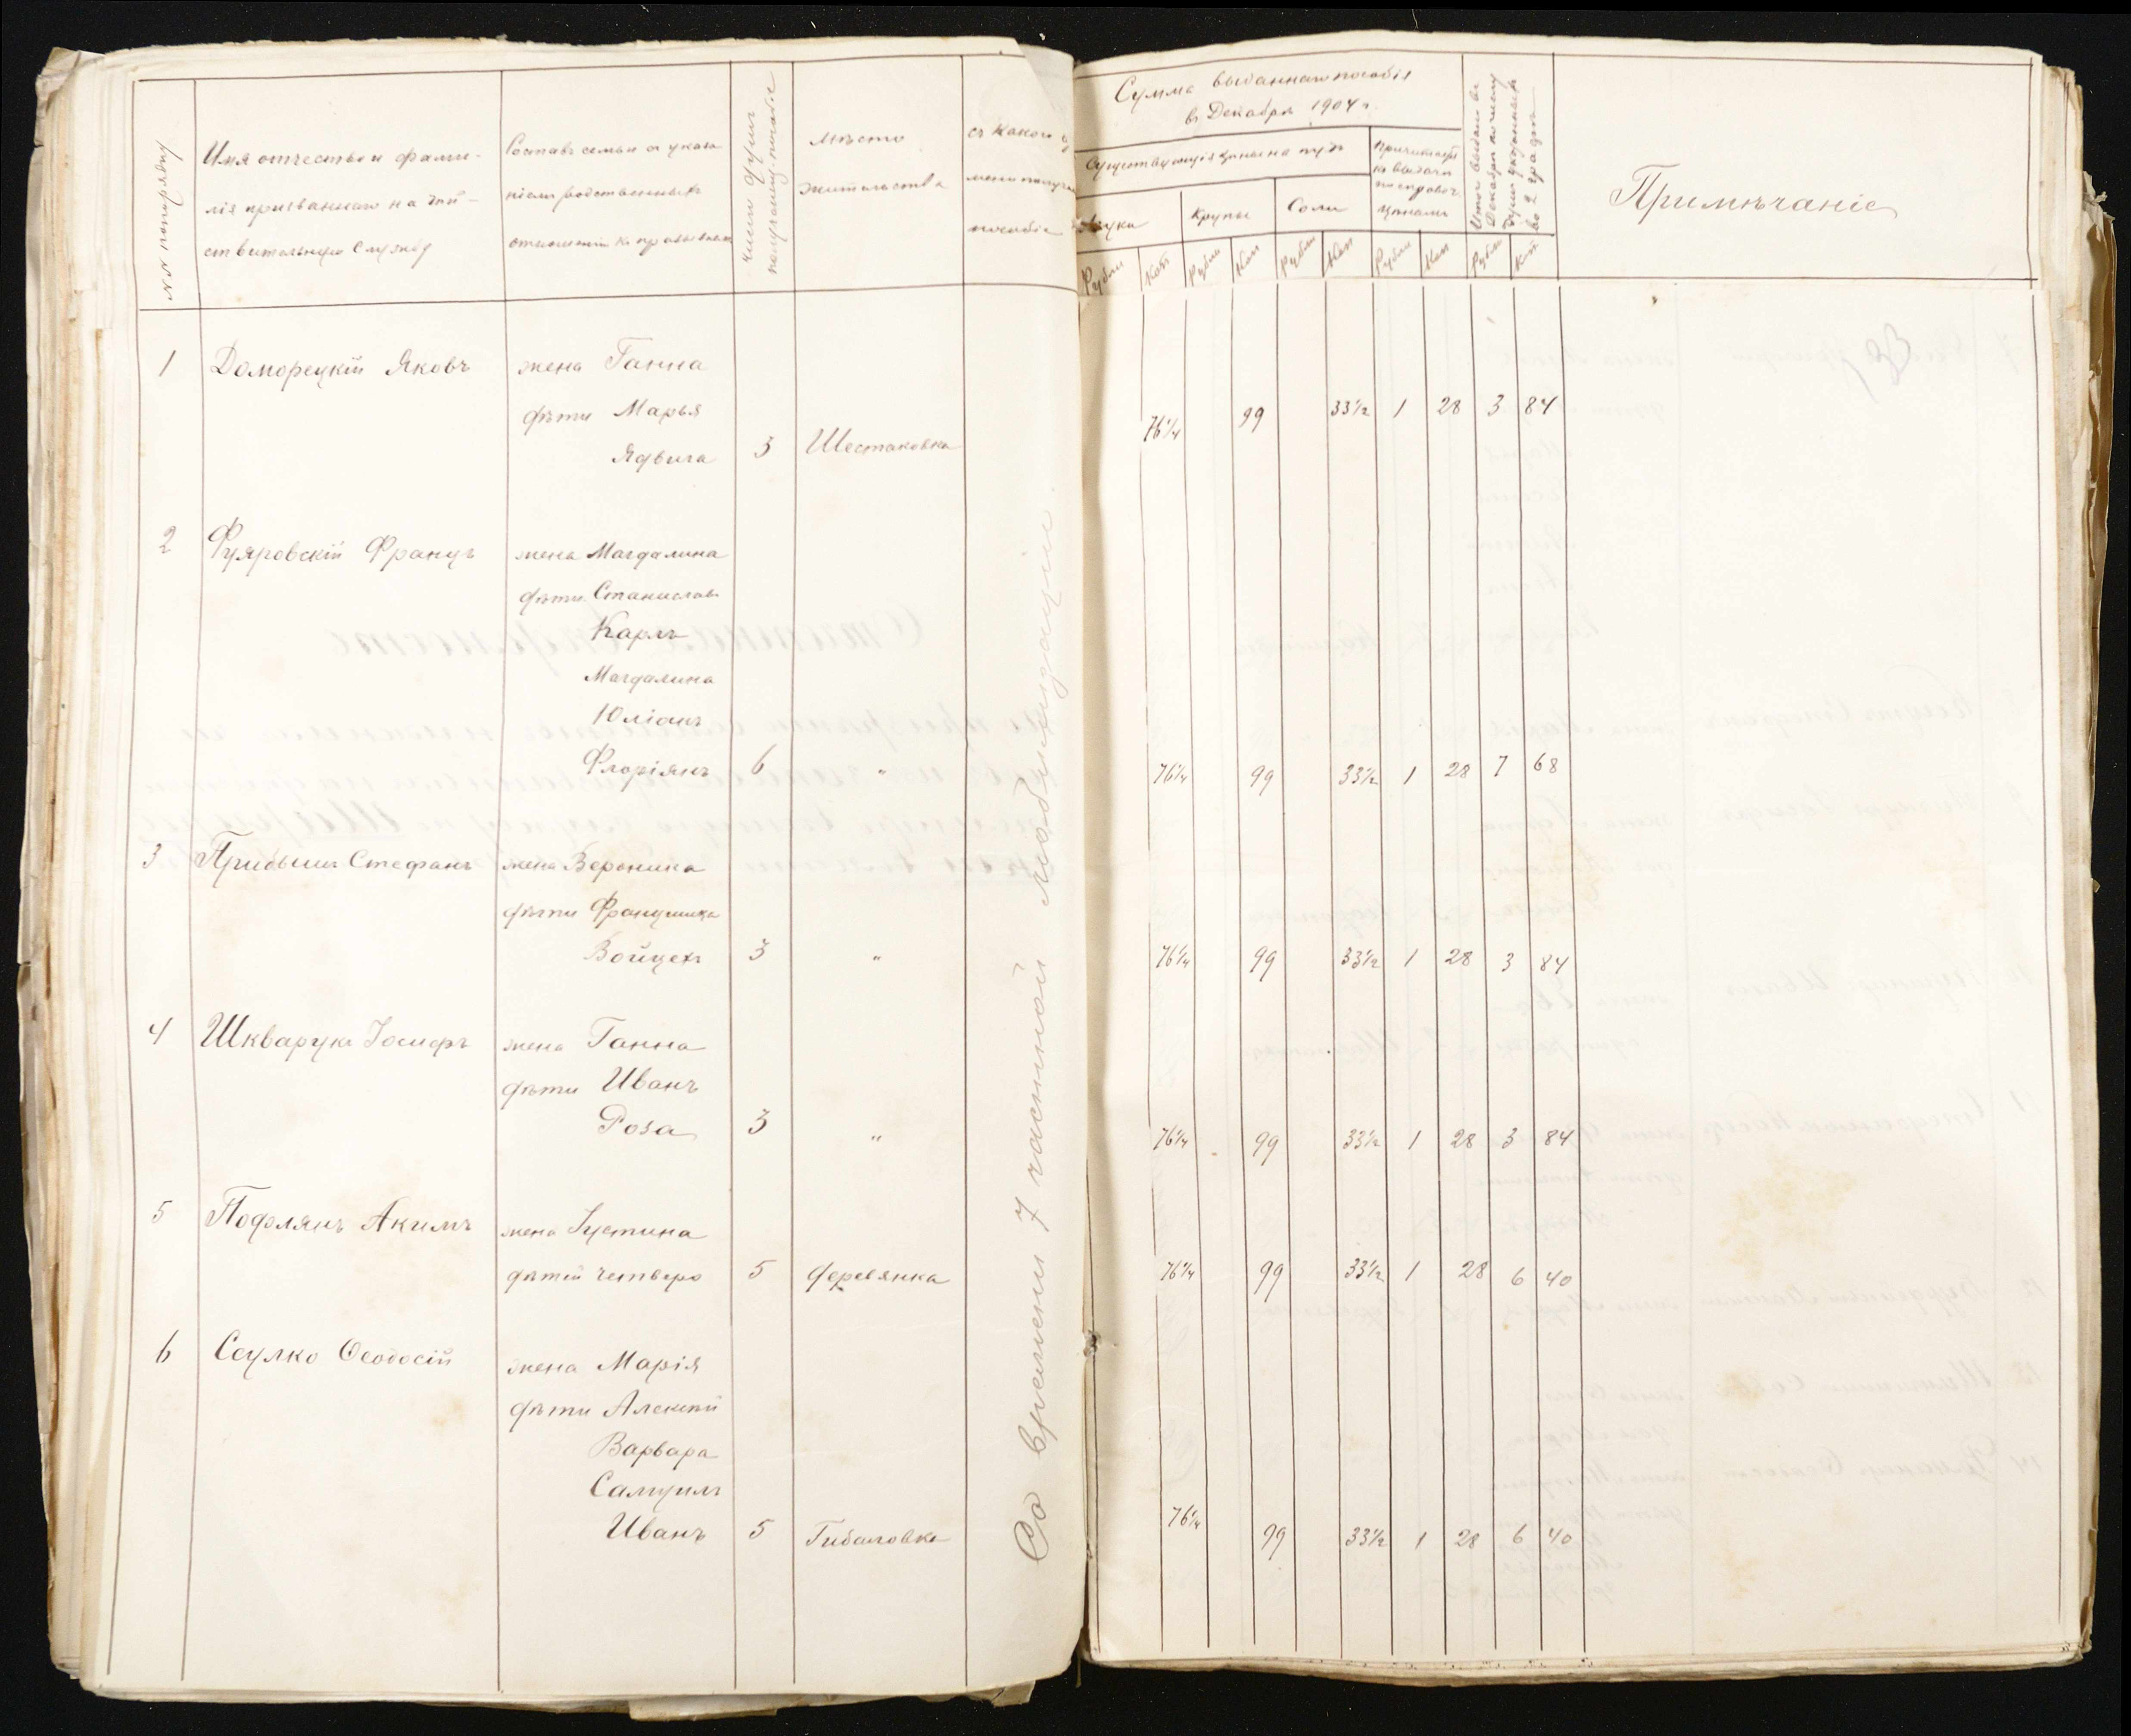 №№ попорядку
Имя отчество и фами-
лія призваннаго на дѣй-
ствительную службу
Составъ семьи съ указа-
ніемъ родственныхъ
отношеній къ призванному
Число душъ
получающ. пособіе
Мѣсто
жительства
съ какого
времени получа
пособіе
Сумма выданнаго пособія
въ Декабрѣ 1904 г.
Существующія цѣны на пудъ
Муки
Крупы
Соли
Причитается
къ выдачѣ
по справоч.
цѣнамъ
Итого выдано въ
Декабрѣ по числу
душъ указанныхъ
во 2 графѣ
Рубли Коп Рубли Коп Рубли Коп Рубли Коп Рубли Коп
Примѣчаніе
133
1 Доморецкій Яковъ жена Ганна
дѣти Марья
Ядвига 3 Шестаковка 76¼ 99 33½ 1 28 3 84
2 Фуяровскій Францъ жена Магдалина
дѣти Станиславъ
Карлъ
Магдалина
Юліанъ
Флоріянъ 6 " 76¼ 99 33½ 1 28 7 68
3 Прибышъ Стефанъ жена Вероника
дѣти Францишка
Войцехъ 3 " 76¼ 99 33½ 1 28 3 84
4 Шкварукъ Іосифъ жена Ганна
дѣти Иванъ
Роза 3 " 76¼ 99 33½ 1 28 3 84
5 Подолянъ Акимъ жена Іустина
дѣтей четверо 5 Деревянка 76¼ 99 33½ 1 28 6 40
6 Сеулко Ѳеодосій жена Марія
дѣти Алексѣй
Варвара
Самуилъ
Иванъ 5 Гибаловка 76¼ 99 33½ 1 28 6 40
Со времени 7 частной мобилизаціи